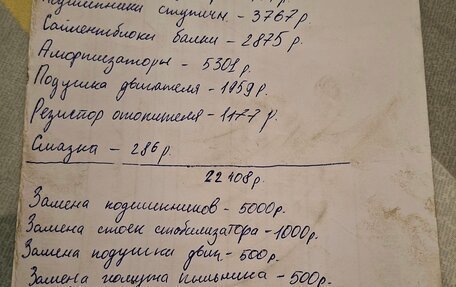 Подшипники ступицы - 3767р.
Сайлентблоки балки - 2875р.
Амортизаторы - 5301р.
Подушка двигателя - 1959р.
Резистор отопителя - 1177 р.
Смазка - 286р.
22408р.
Замена подшипников - 5000р.
Замена стоек стабилизатора - 1000р.
Замена подушки двиг - 500р.
Замена хомута пыльника - 500р.